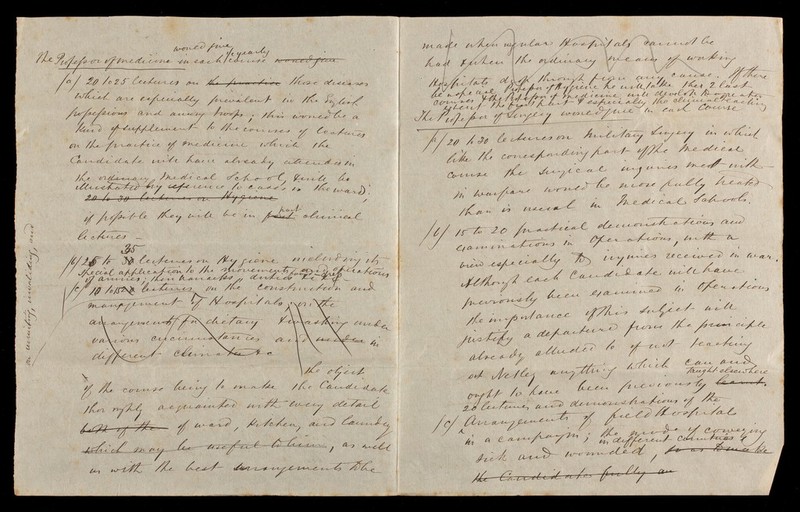 would give
The Professor of medicine in each yearly course would give
(a) 20 to 25 lectures on the practice those diseases
which are especially prevalent in the English
possessions and among troops; this would be a
kind of supplement to the courses of lectures
on the practice of medicine which the
Candidate will have already attended in
the ordinary Medical School, & will be
illustrated by reference to cases in the ward;
20 to 30 lectures on Hygiene
if possible they will be in part clinical
lectures —
35
(b) 25 to 30 lectures on Hygiene including its
special application to the movements and operations
of armies, their characters,
(c) 10 to lectures on the construction and
management of Hospitals, on the
arrangements for dietary & washing under
various circumstances and in
different climates &c
the object
of the course being to make the Candidate
thoroughly acquainted with every detail
both of the of ward, kitchen, and laundry
which may be useful to him, as well
as with the best arrangements to be
on ventilg, moulding, and
made when regular Hospitals cannot be
had & when the ordinary means of working
Hospitals drop through from any cause. If there
be a separate Professor of Hygiene he will take these 2 last
courses & the Professor of Medicine will devote to a greater
extent the & especially the clinical teaching
The Professor of Surgery would give in each Course
(a) 20 to 30 lectures on Military Surgery in which
like the corresponding part of the Medical
Course the surgical injuries met with
in warfare would be more fully treated
than is usual in Medical Schools.
(b) 15 to 20 practical demonstrations and
examinations in Operations, with a
view especially to injuries received in war.
Although each Candidate will have
previously been examined in Operations
the importance of this subject will
justify a departure from the principle
already alluded to of not teaching
at Netley anything which can and
ought to have been previously learnt,
taught elsewhere
20 lectures and demonstrations of the
(c) Arrangements of field Hospitals
in a campaign; the mode of conveying
in different countries
sick and wounded, so as to make the
the Candidates fully au